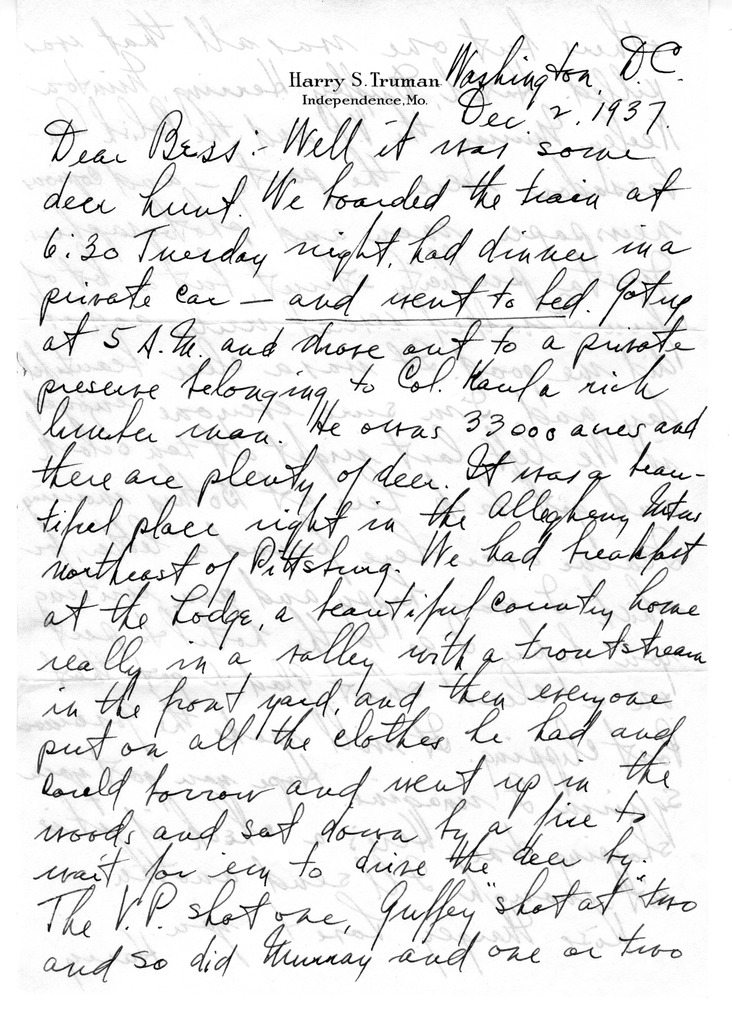 Harry S. Truman
Independence, Mo.
Washington, D.C.
Dec. 2, 1937.
Dear Bess:- Well it was some
deer hunt. We boarded the train at
6:30 Tuesday night, had dinner in a
private car — and went to bed. Got up
at 5 A.M. and drove out to a private
preserve belonging to Col. Kaul a rich
lumber man. He owns 33000 acres and
there are plenty of deer. It was a beau-
tiful place right in the Allegheny Mtns
northeast of Pittsburg. We had breakfast
at the Lodge, a beautiful country home
really in a valley with a trout stream
in the front yard, and then everyone
put on all the clothes he had and
could borrow and went up in the
woods and sat down by a fire to
wait for em to drive the deer by.
The V.P. shot one, Guffey "shot at" two
and so did Murray and one or two